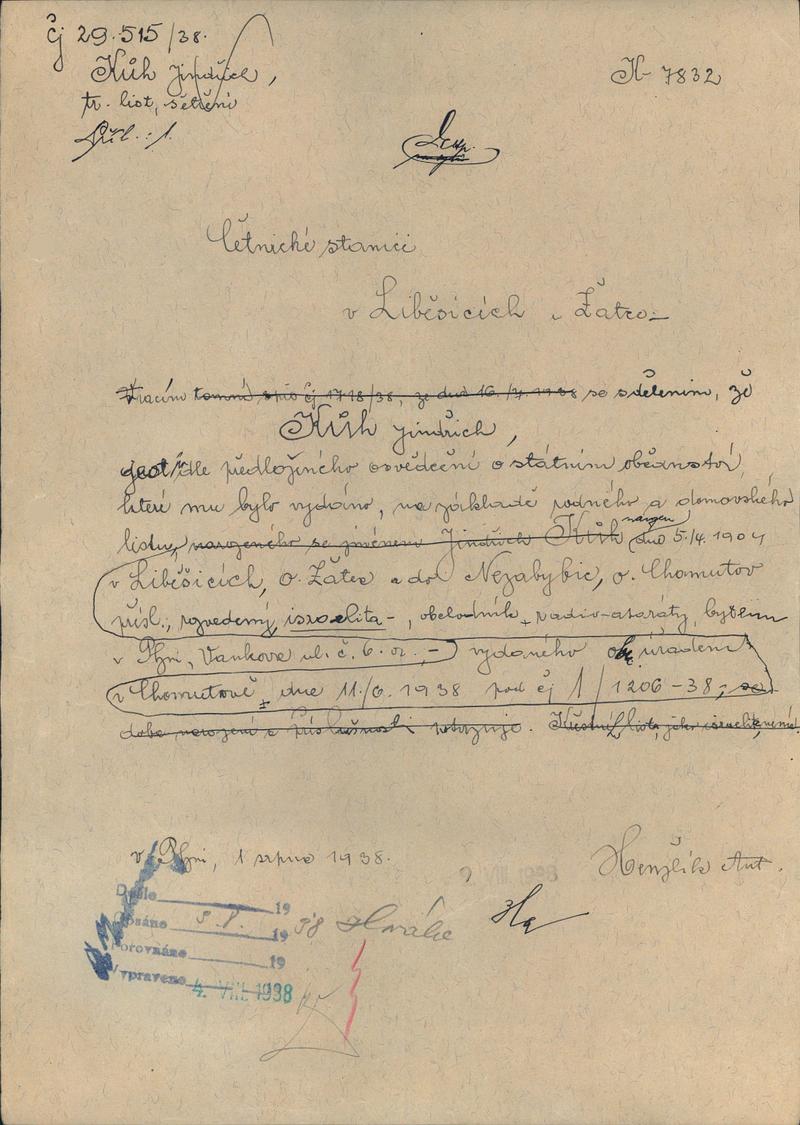 čj 29.515/38.
Kůh Jindřich,
K 7832
tr. list, šetření
Příl.: 1.
Četnické stanici
v Liběšicích u Žatce
Vracím tamní spis čj 1718/38, ze dne 16./7. 1938 se sdělením, že
Kůh Jindřich,
dle předloženého osvědčení o státním občanství,
které mu bylo vydáno, na základě rodného a domovského
listu, narozeného se jménem Jindřich Kůh narozen dne 5./4. 1904
v Liběšicích, o. Žatec a do Nezabylic, o. Chomutov
přísl., rozvedený, israelita -, obchodník s radio-aparáty, bytem
v Plzni, Vaňkova ul. č. 6. or., - vydaného okr. úřadem
v Chomutově dne 11./6. 1938 pod čj 1/1206-38, se
doba narození a příslušnosti potvrzuje. Křestní list, jako israelita, nemá.
v Plzni, 1 srpna 1938.
Henžlík Ant.
Došlo 19
Psáno 3.8. 1938
Porovnáno 19
Vypraveno 4. VIII. 1938